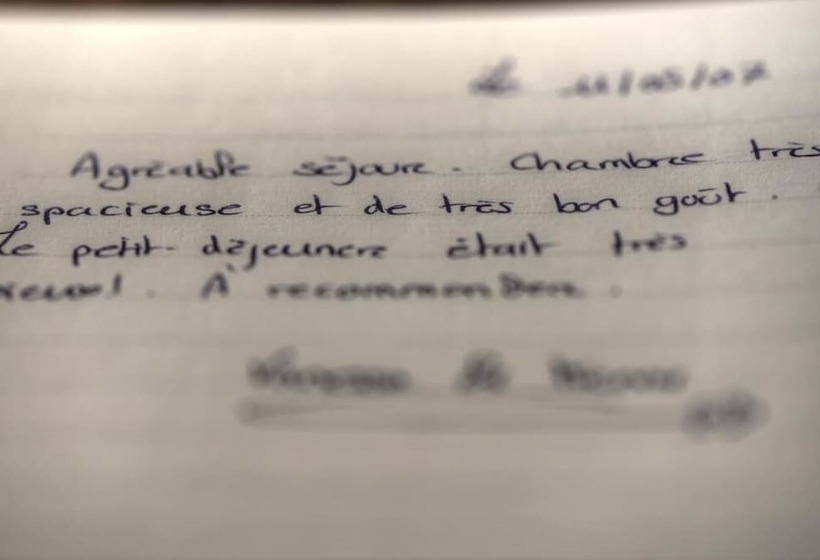 Le 11/05/07
Agréable séjour. Chambre très
spacieuse et de très bon goût.
Le petit-déjeuner était très
À recommander.